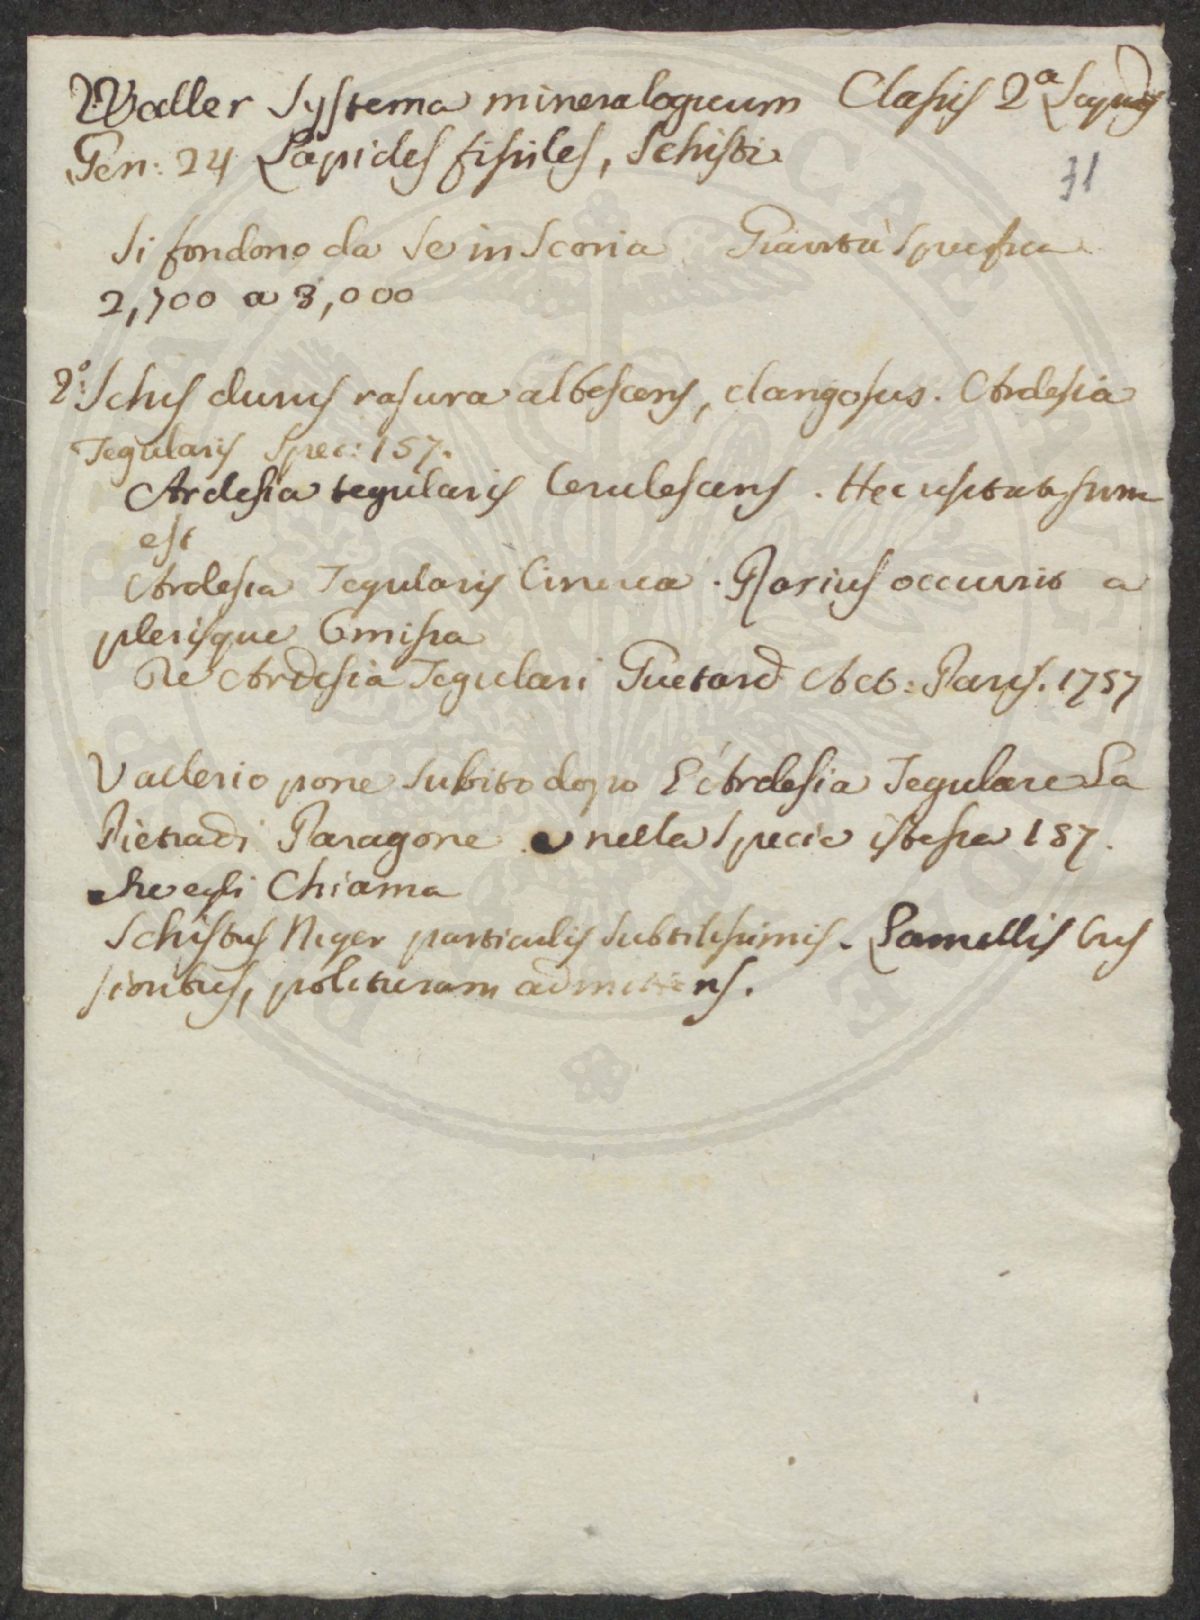 Waller Systema mineralogicum Classis 2a Lapides
Gen: 24 Lapides fissiles, Schisti
31
Si fondono da se in Scoria Gravità Specifica
2,700 a 3,000
2º: Schis durus rasura albescens, clangosus. Ardesia
Tegularis Spec: 157.
Ardesia tegularis Cerulescens. Hec usitatissum
est
Ardesia Tegularis Cinerea. Rarius occurrit a
plerisque Omissa
De Ardesia Tegulari Guetard Act: Paris. 1757
Vallerio pone Subito dopo L'Ardesia Tegulare La
Pietra di Paragone e nella Specie istessa 157.
che egli Chiama
Schistus Niger particulis Subtilissimis. Lamellis Cras
sioribus, polituram admittens.